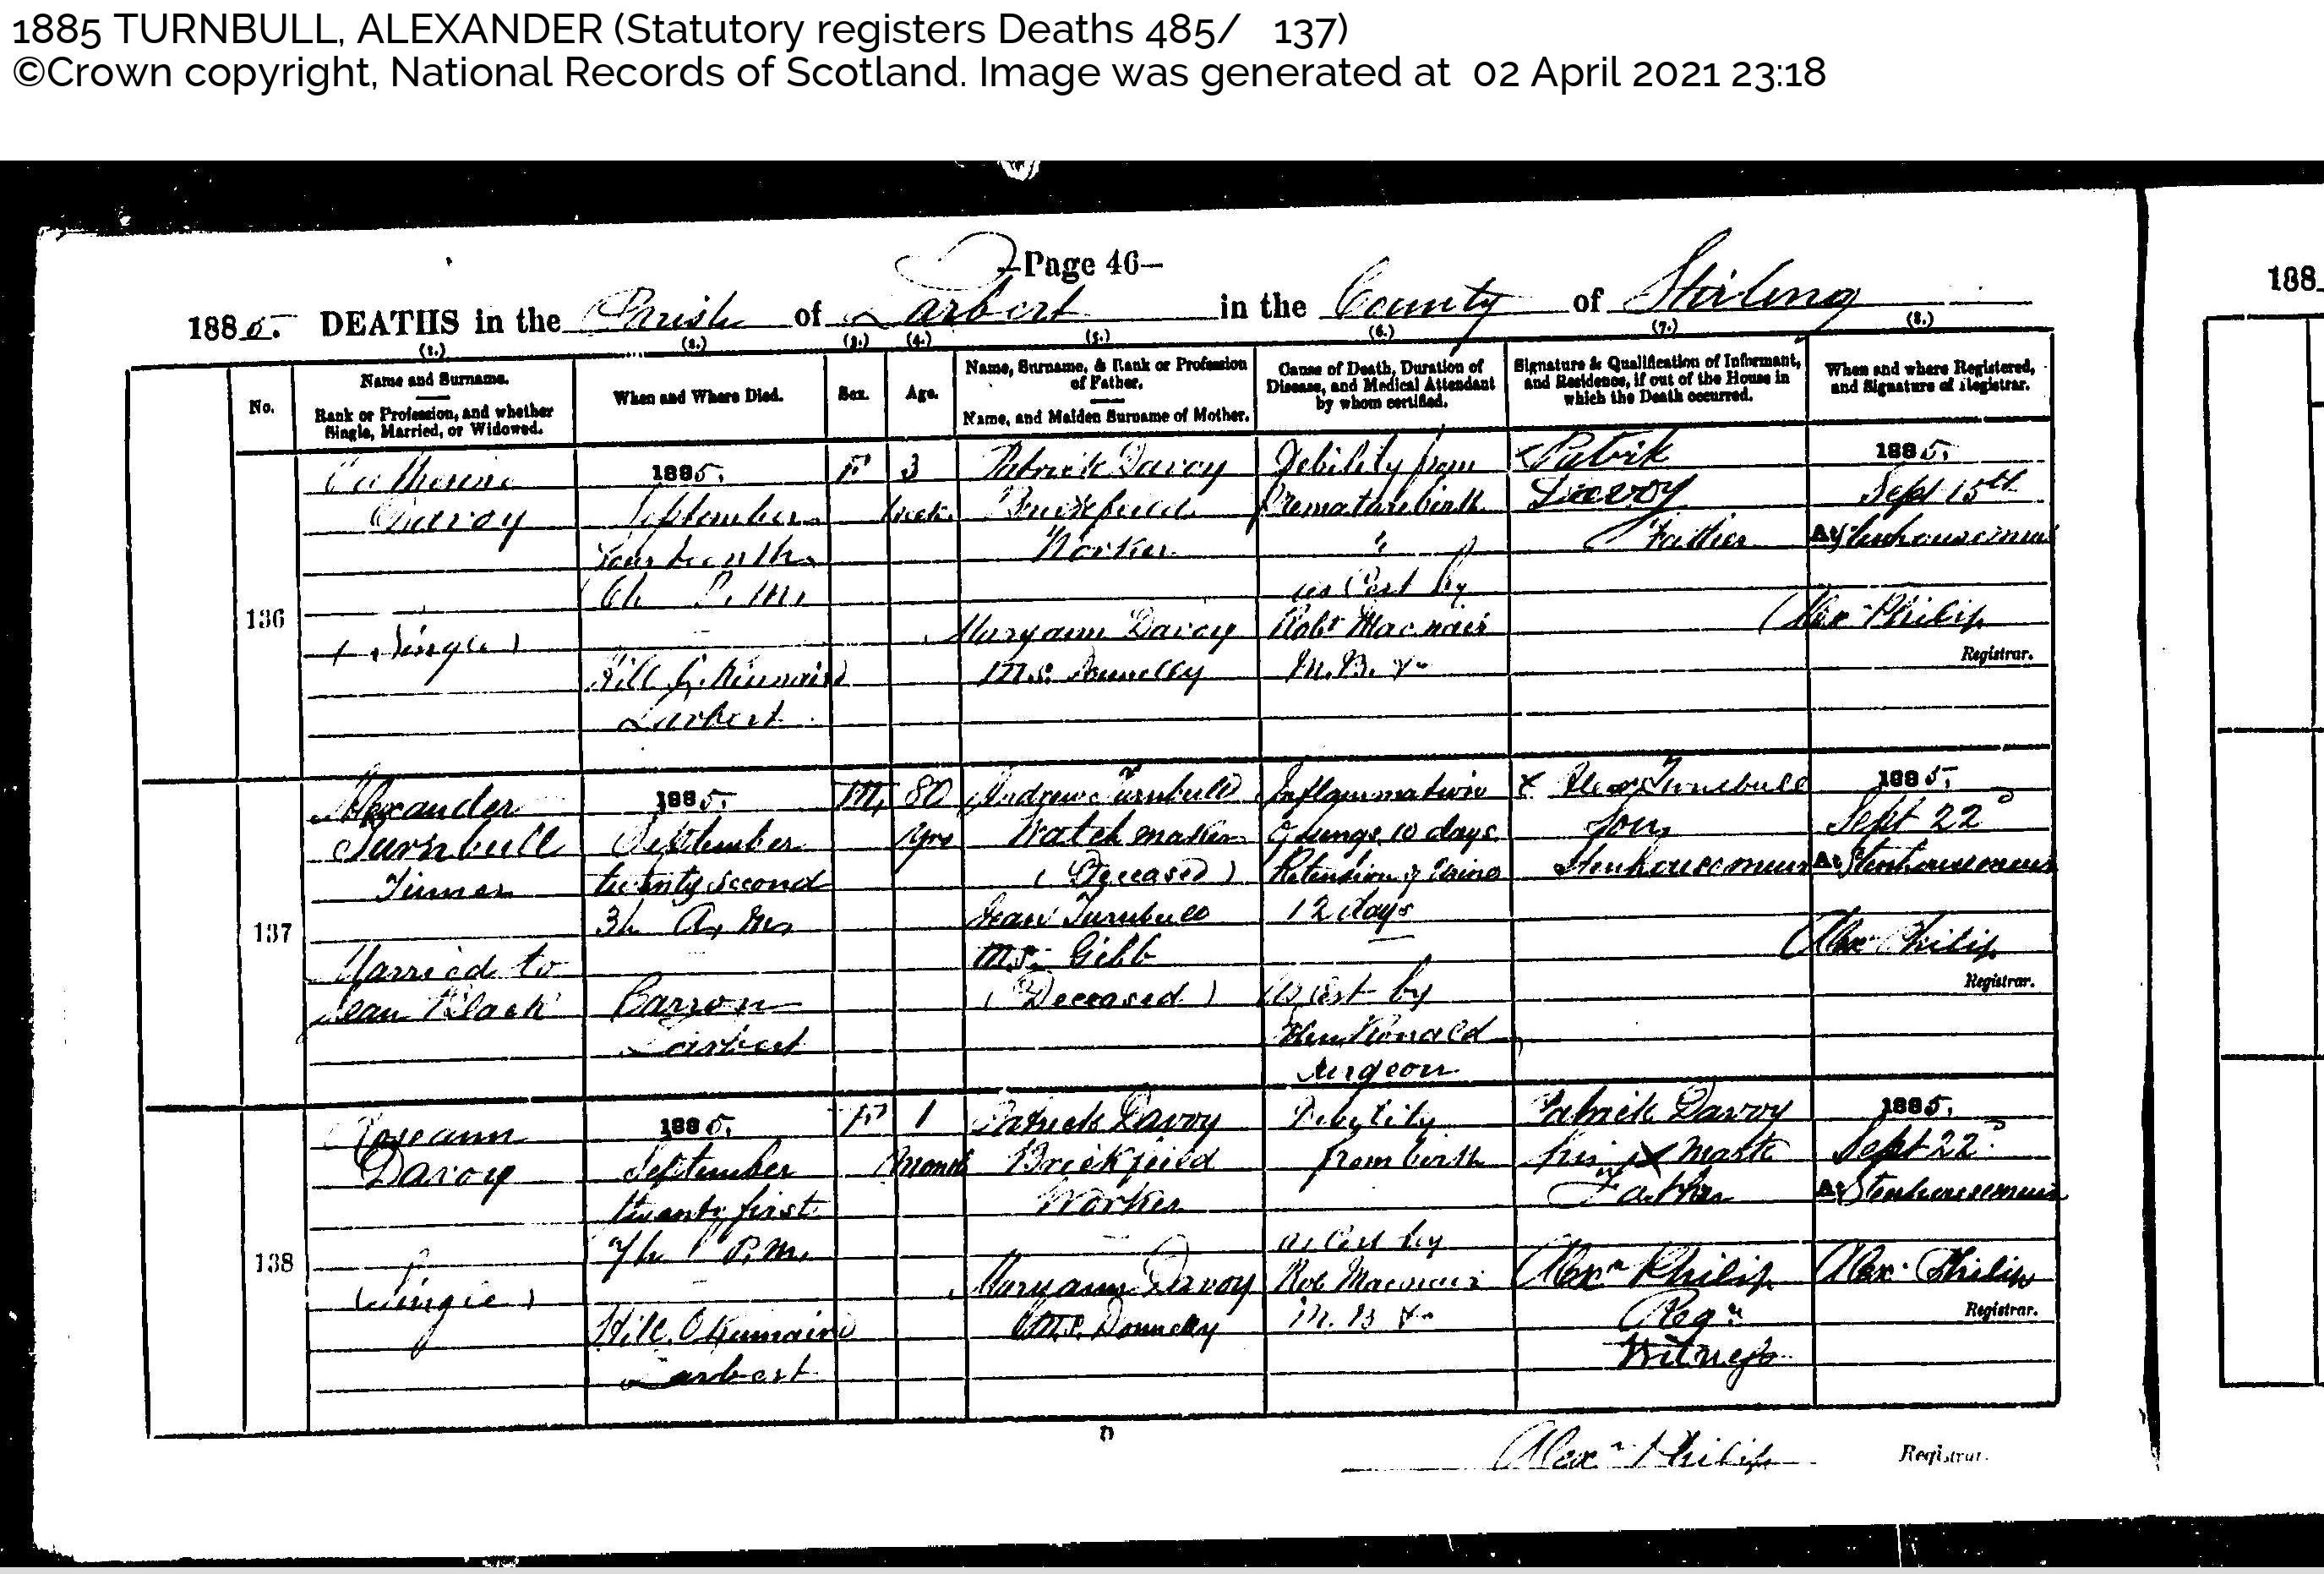 1885 TURNBULL, ALEXANDER (Statutory registers Deaths 485/ 137)
©Crown copyright, National Records of Scotland. Image was generated at 02 April 2021 23:18
—Page 46—
1885. DEATHS in the Parish of Larbert in the County of Stirling
188
(1.) (2.) (3.) (4.) (5.) (6.) (7.) (8.)
No.
Name and Surname.
Rank or Profession, and whether
Single, Married, or Widowed.
When and Where Died.
Sex.
Age.
Name, Surname, & Rank or Profession
of Father.
Name, and Maiden Surname of Mother.
Cause of Death, Duration of
Disease, and Medical Attendant
by whom certified.
Signature & Qualification of Informant,
and Residence, if out of the House in
which the Death occurred.
When and where Registered,
and Signature of Registrar.
136
Catherine
Davoy
(Single)
1885.
September
fourteenth
6h P.M.
Kinnaird
Larbert
F
3
weeks
Patrick Davoy
Brickfield
Worker
Maryann Davoy
M.S. Donnelly
Debility from
Premature birth
as Cert by
Robt Macnair
M.B. &c
Patrik
Davoy
Father
1885.
Sept 15th
At Stenhousemuir
Alexr Philip
Registrar.
137
Alexander
Turnbull
Married to
Jean Black
1885.
September
twenty second
3h A.M.
Carron
Larbert
M.
80
yrs
Andrew Turnbull
Watch maker
(Deceased)
Jean Turnbull
M.S. Gibb
(Deceased)
Inflammation
of lungs 10 days
Retention of Urine
12 days
As Cert by
Ronald
Surgeon
x Alexr Turnbull
Son
Stenhousemuir
1885.
Sept 22d
At Stenhousemuir
Alexr Philip
Registrar.
138
Roseann
Davoy
(Single)
1885.
September
twenty first
7h P.M.
Hill O Kinnaird
Larbert
F
1
Month
Patrick Davoy
Brickfield
Worker
Maryann Davoy
M.S. Donnelly
Debility
from birth
as Cert by
Rob Macnair
M.B &c
Patrick Davoy
his x mark
Father
Alexr Philip
Regr
Witness
1885.
Sept 22d
At Stenhousemuir
Alexr Philip
Registrar.
D
Alexr Philip Registrar.